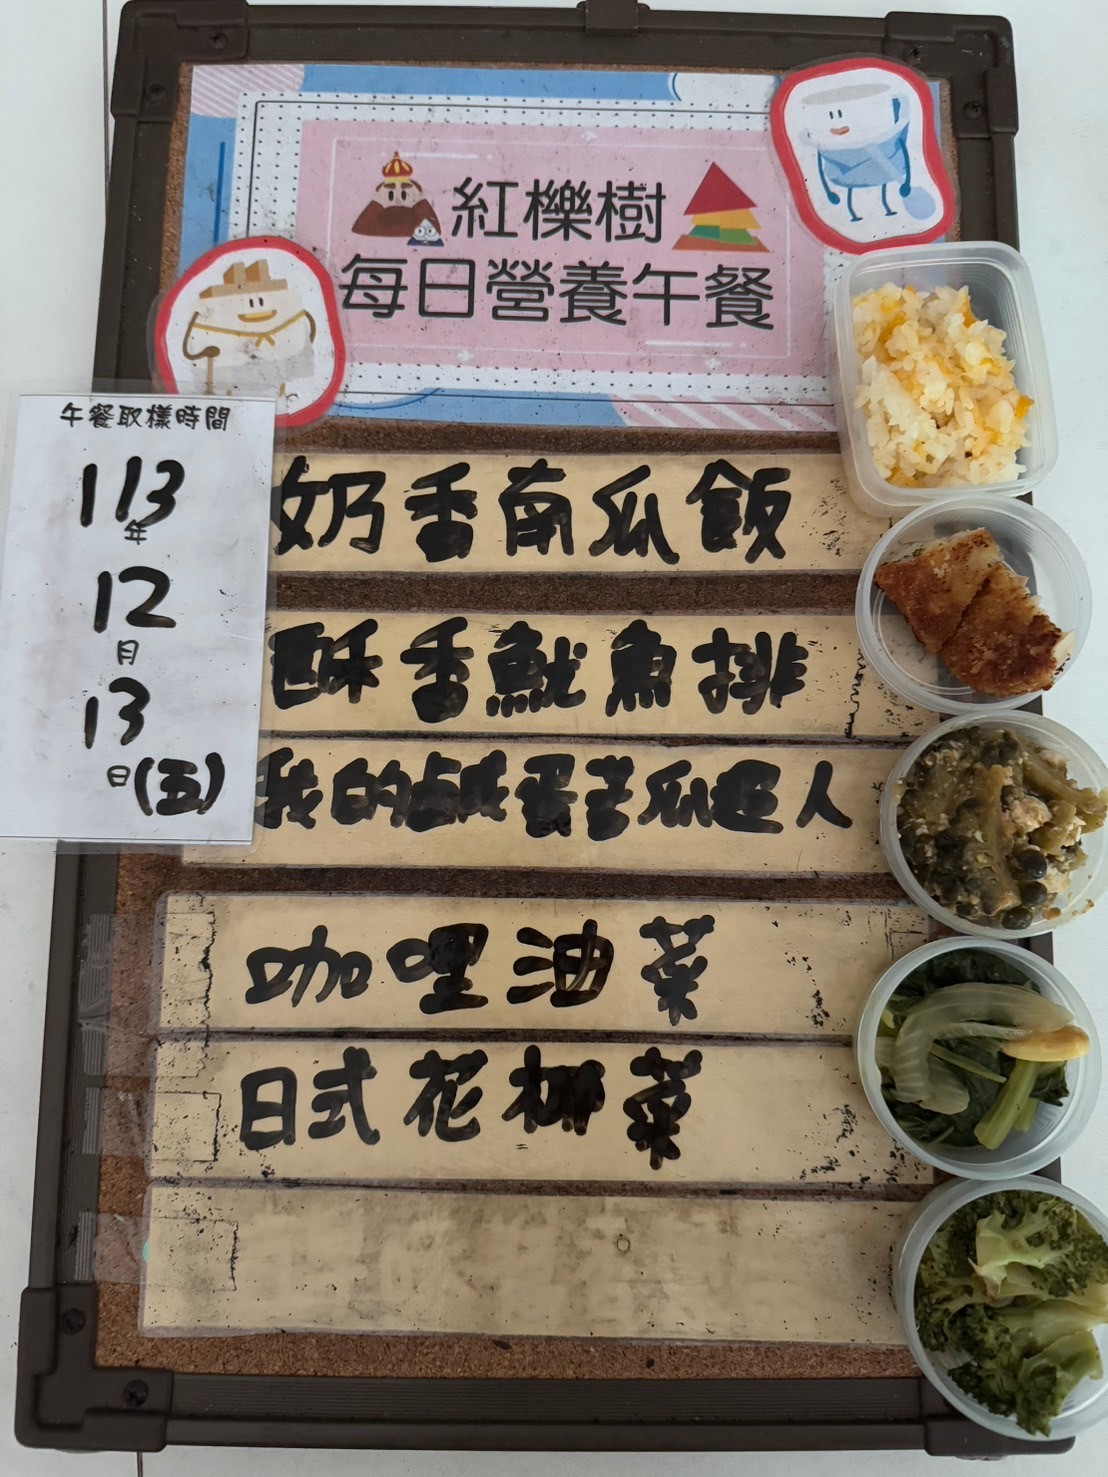 紅櫟樹
每日營養午餐
午餐取樣時間
113
年
12
月
13
日(五)
奶香南瓜飯
酥香魷魚排
我的鹹蛋苦瓜超人
咖哩油菜
日式花椰菜